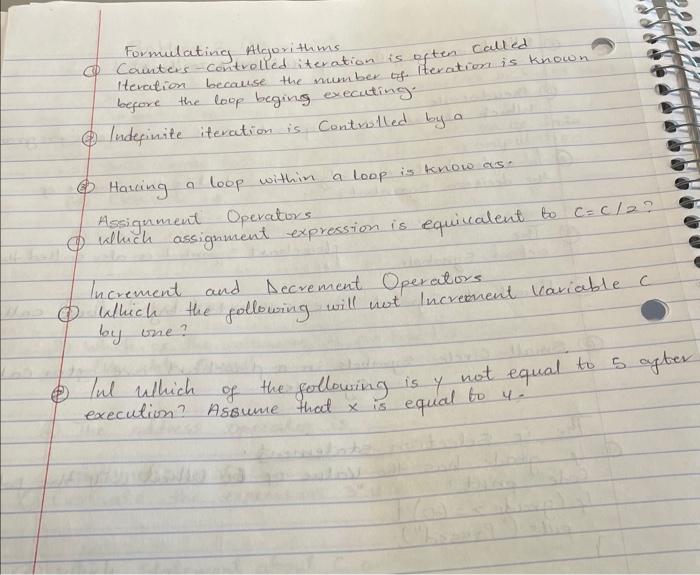 Formulating Algorithms
① Counters-Controlled iteration is often called
Iteration because the number of Iteration is known
before the loop begins executing.
② Indefinite iteration is Controlled by a
③ Having a loop within a loop is know as.
Assignment Operators
① Which assignment expression is equivalent to C=C/2?
Increment and Decrement Operators
① Which the following will not Increment Variable C
by one?
② which of the following is y not equal to 5 after
execution? Assume that x is equal to 4.